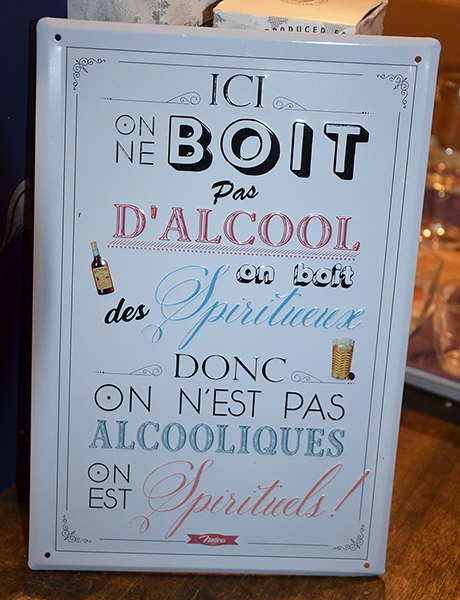 PRODUCED
ICI
ON NE BOIT
Pas
D'ALCOOL
on boit
des Spiritueux
DONC
ON N'EST PAS
ALCOOLIQUES
ON EST Spirituels !
Natives